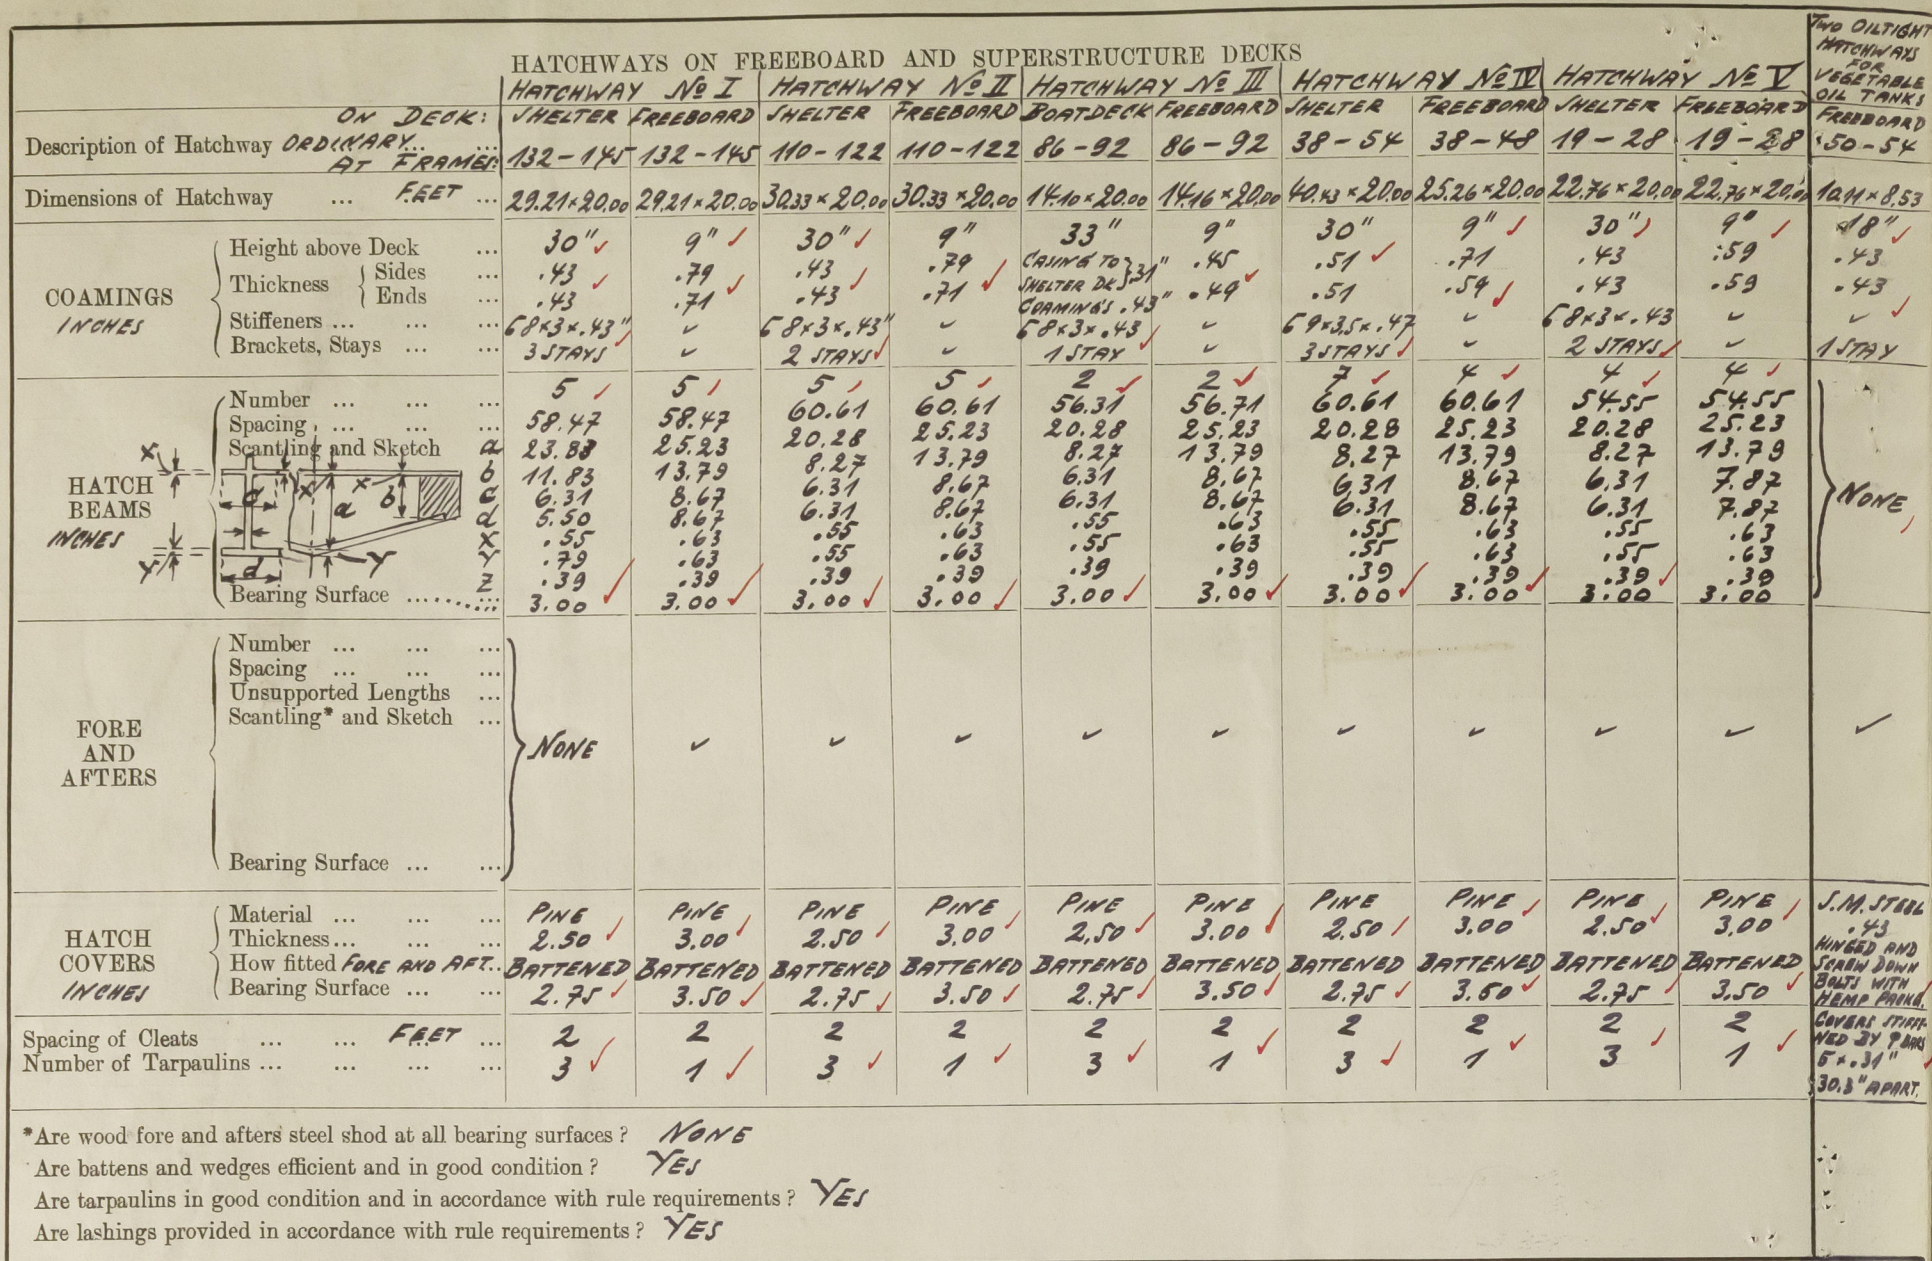 HATCHWAYS ON FREEBOARD AND SUPERSTRUCTURE DECKS
TWO OILTIGHT
HATCHWAYS
FOR
VEGETABLE
OIL TANKS
HATCHWAY No I HATCHWAY No II HATCHWAY No III HATCHWAY No IV HATCHWAY No V
ON DECK: SHELTER FREEBOARD SHELTER FREEBOARD BOATDECK FREEBOARD SHELTER FREEBOARD SHELTER FREEBOARD FREEBOARD
Description of Hatchway ORDINARY... ...
AT FRAMES: 132-145 132-145 110-122 110-122 86-92 86-92 38-54 38-48 19-28 19-28 50-54
Dimensions of Hatchway ... FEET ... 29.21×20.00 29.21×20.00 30.33×20.00 30.33×20.00 14.10×20.00 14.16×20.00 40.43×20.00 25.26×20.00 22.76×20.00 22.76×20.00 10.11×8.53
COAMINGS
INCHES
Height above Deck ... 30" ✓ 9" ✓ 30" ✓ 9" 33" 9" 30" 9" ✓ 30" ✓ 9" ✓ 18" ✓
Thickness { Sides ... .43 .79 .43 .79 CASING TO SHELTER DK } .31" .45 .51 .71 .43 .59 .43
Ends ... .43 .71 .43 .71 COAMINGS .43" .49 .51 .59 .43 .59 .43
Stiffeners ... ... ... 68×3×.43" ✓ 68×3×.43" ✓ 68×3×.43 ✓ 69×3.5×.47 ✓ 68×3×.43 ✓ ✓
Brackets, Stays ... ... 3 STAYS ✓ 2 STAYS ✓ 1 STAY ✓ 3 STAYS ✓ 2 STAYS ✓ 1 STAY
HATCH
BEAMS
INCHES
Number ... ... ... 5 5 5 5 2 2 7 4 4 4
Spacing ... ... ... 58.47 58.47 60.61 60.61 56.31 56.71 60.61 60.61 54.55 54.55
Scantling and Sketch a 23.88 25.23 20.28 25.23 20.28 25.23 20.28 25.23 20.28 25.23
b 11.83 13.79 8.27 13.79 8.27 13.79 8.27 13.79 8.27 13.79
c 6.31 8.67 6.31 8.67 6.31 8.67 6.31 8.67 6.31 7.87
d 5.50 8.67 6.31 8.67 6.31 8.67 6.31 8.67 6.31 7.87
X .55 .63 .55 .63 .55 .63 .55 .63 .55 .63
Y .79 .63 .55 .63 .55 .63 .55 .63 .55 .63
Z .39 .39 .39 .39 .39 .39 .39 .39 .39 .39
Bearing Surface ... ... 3.00 3.00 3.00 3.00 3.00 3.00 3.00 3.00 3.00 3.00
NONE
X X X a b d d Y Y
FORE
AND
AFTERS
Number ... ... ...
Spacing ... ... ...
Unsupported Lengths ...
Scantling* and Sketch ...
NONE ✓ ✓ ✓ ✓ ✓ ✓ ✓ ✓ ✓ ✓
Bearing Surface ... ...
HATCH
COVERS
INCHES
Material ... ... ... PINE PINE PINE PINE PINE PINE PINE PINE PINE PINE S.M. STEEL
Thickness... ... ... 2.50 3.00 2.50 3.00 2.50 3.00 2.50 3.00 2.50 3.00 .43
How fitted FORE AND AFT... BATTENED BATTENED BATTENED BATTENED BATTENED BATTENED BATTENED BATTENED BATTENED BATTENED
Bearing Surface ... ... 2.75 3.50 2.75 3.50 2.75 3.50 2.75 3.50 2.75 3.50
HINGED AND
SCREW DOWN
BOLTS WITH
HEMP PACKG.
Spacing of Cleats ... ... FEET ... 2 2 2 2 2 2 2 2 2 2
Number of Tarpaulins ... ... ... ... 3 1 3 1 3 1 3 1 3 1
COVERS STIFFE-
NED BY BARS
5×.31"
30.3" APART.
*Are wood fore and afters steel shod at all bearing surfaces? NONE
Are battens and wedges efficient and in good condition? YES
Are tarpaulins in good condition and in accordance with rule requirements? YES
Are lashings provided in accordance with rule requirements? YES